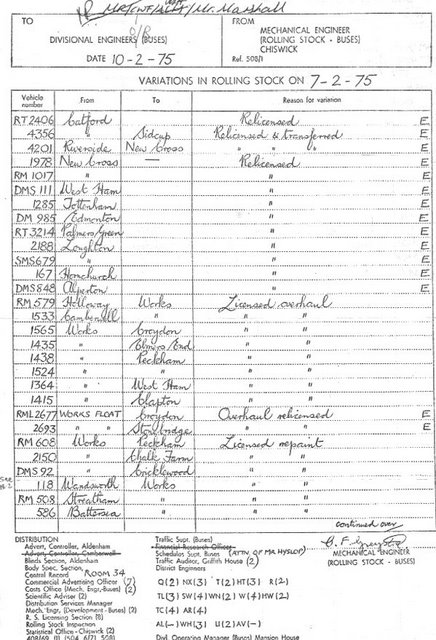 TO
DIVISIONAL ENGINEERS (BUSES)
DATE 10-2-75
FROM
MECHANICAL ENGINEER
(ROLLING STOCK - BUSES)
CHISWICK
Ref. 508/1
VARIATIONS IN ROLLING STOCK ON 7-2-75
Vehicle number From To Reason for variation
RT 2406 Catford Relicensed E
4356 " Sidcup Relicensed & transferred E
4201 Riverside New Cross " " " E
1978 New Cross — Relicensed E
RM 1017 " " E
DMS 111 West Ham " E
1285 Tottenham " E
DM 985 Edmonton " E
RT 3214 Palmers Green " E
2188 Loughton " E
SMS 679 " " E
167 Hornchurch " E
DMS 848 Alperton " E
RM 579 Holloway Works Licensed overhaul
1533 Camberwell " " "
1565 Works Croydon " "
1435 " Elmers End " "
1438 " Peckham " "
1524 " " " "
1364 " West Ham " "
1415 " Clapton " "
RML 2677 WORKS FLOAT Croydon Overhaul relicensed E
2693 " " Stockbridge " " E
RM 608 Works Peckham Licensed repaint
2150 " Chalk Farm " "
DMS 92 " Cricklewood " "
118 Wandsworth Works " "
RM 508 Streatham " " "
586 Battersea " " "
continued over
DISTRIBUTION
Advert. Controller, Aldenham
Advert. Controller, Camberwell
Blinds Section, Aldenham
Body Spec. Section,
Central Record ROOM 34
Commercial Advertising Officer (7)
Costs Office (Mech. Engr.-Buses) (2)
Scientific Adviser (2)
Distribution Services Manager
Mech. Engr. (Development - Buses) (2)
R. S. Licensing Section (8)
Rolling Stock Inspection
Statistical Office - Chiswick (2)
Traffic Supt. (Buses)
Financial Research Officer
Schedules Supt. Buses (ATTN. OF MR HYSLOP)
Traffic Auditor, Griffith House (2)
District Engineers
Q(2) NX(3) T(2) HT(3) R(2)
TL(3) SW(4) WN(2) W(4) HW(2)
TC(4) AR(4)
AL(-) WH(3) U(2) AV(-)
Dvd. Operating Manager (Buses) Mansion House
MECHANICAL ENGINEER
(ROLLING STOCK - BUSES)